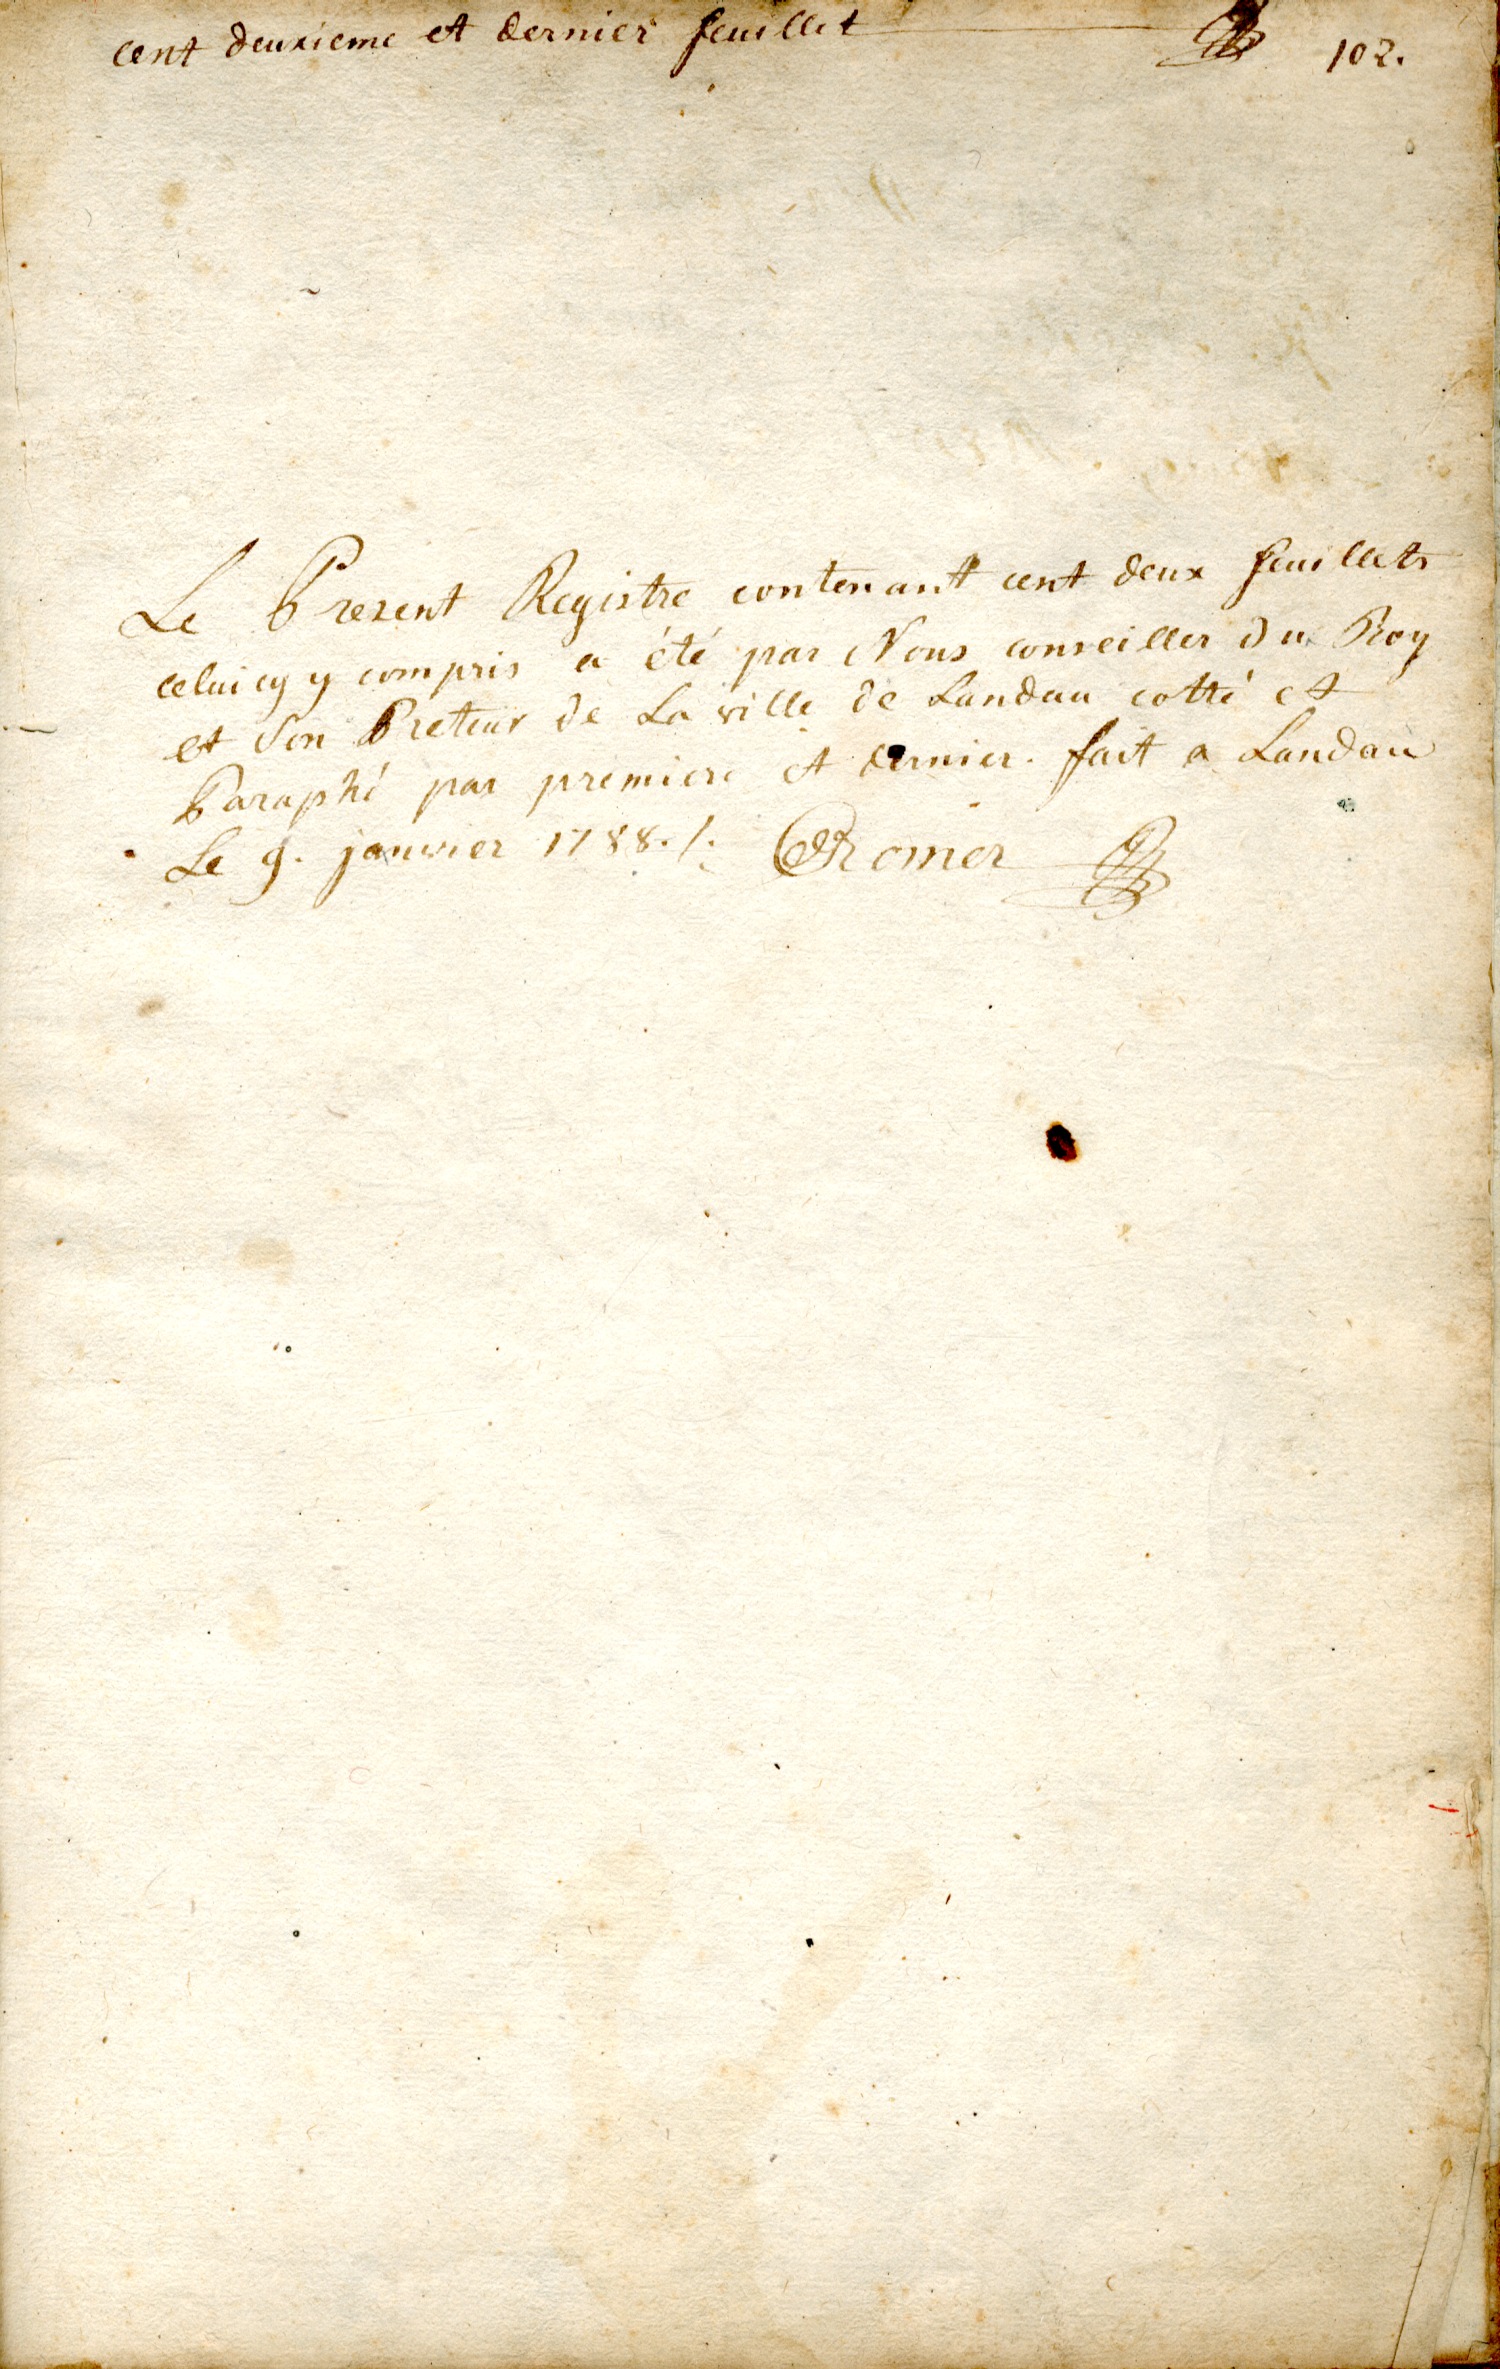 cent deuxieme et dernier feuillet 102.
Le Present Registre contenant cent deux feuillets
celuicy y compris a été par Nous conseiller du Roy
et Son Preteur de La ville de Landau cotté et
Paraphé par premiere et dernier. fait a Landau
Le 9. janvier 1788. /.